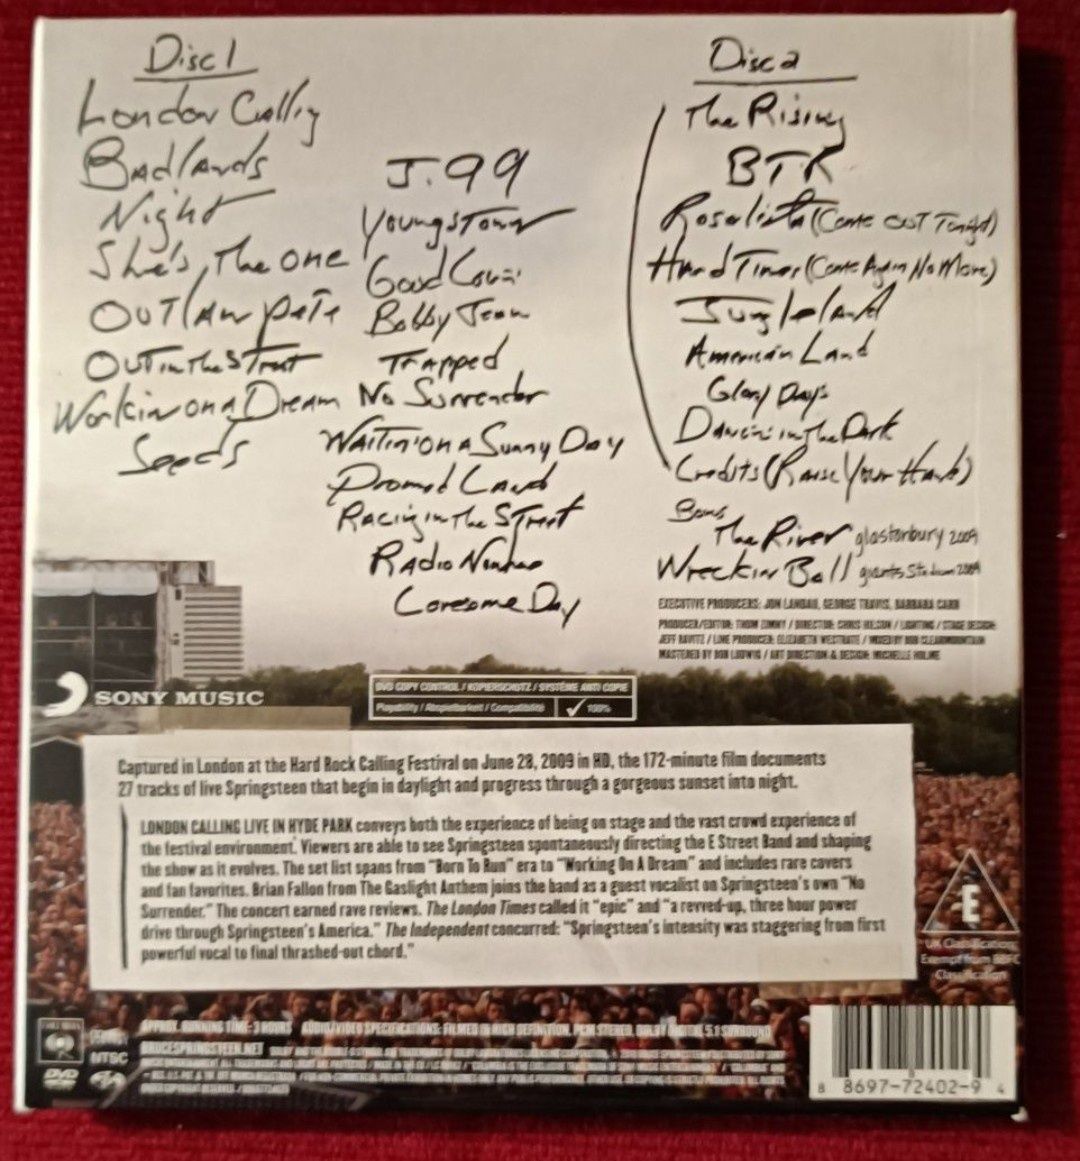 Disc 1
London Calling
Badlands
Night
She's The One
Outlaw Pete
Out in The Street
Workin on a Dream
Seeds
J. 99
Youngstown
Good Lovin
Bobby Jean
Trapped
No Surrender
Waitin' on a Sunny Day
Promised Land
Racing in The Street
Radio Nowhere
Lonesome Day
Disc 2
The Rising
BTR
Rosalita (Come Out Tonight)
Hard Times (Come Again No More)
Jungleland
American Land
Glory Days
Dancin in The Dark
Credits (Raise Your Hand)
Bonus
The River glastonbury 2009
Wreckin Ball giants Stadium 2009
EXECUTIVE PRODUCERS: JON LANDAU, GEORGE TRAVIS, BARBARA CARR
PRODUCER/EDITOR: THOM ZIMNY / DIRECTOR: CHRIS HILSON / LIGHTING / STAGE DESIGN:
JEFF RAVITZ / LINE PRODUCER: ELIZABETH WESTRATE / MIXED BY BOB CLEARMOUNTAIN
MASTERED BY BOB LUDWIG / ART DIRECTION & DESIGN: MICHELLE HOLME
SONY MUSIC
DVD COPY CONTROL / KOPIERSCHUTZ / SYSTÈME ANTI COPIE
Playability / Abspielbarkeit / Compatibilité 100%
Captured in London at the Hard Rock Calling Festival on June 28, 2009 in HD, the 172-minute film documents
27 tracks of live Springsteen that begin in daylight and progress through a gorgeous sunset into night.
LONDON CALLING LIVE IN HYDE PARK conveys both the experience of being on stage and the vast crowd experience of
the festival environment. Viewers are able to see Springsteen spontaneously directing the E Street Band and shaping
the show as it evolves. The set list spans from "Born To Run" era to "Working On A Dream" and includes rare covers
and fan favorites. Brian Fallon from The Gaslight Anthem joins the band as a guest vocalist on Springsteen's own "No
Surrender." The concert earned rave reviews. The London Times called it "epic" and "a revved-up, three hour power
drive through Springsteen's America." The Independent concurred: "Springsteen's intensity was staggering from first
powerful vocal to final thrashed-out chord."
E
UK Classification
Exempt from BBFC
Classification
APPROX. RUNNING TIME: 3 HOURS AUDIO/VIDEO SPECIFICATIONS: FILMED IN HIGH DEFINITION, PCM STEREO, DOLBY DIGITAL 5.1 SURROUND
BRUCESPRINGSTEEN.NET
COLUMBIA
NTSC
DVD
8 8697-72402-9 4